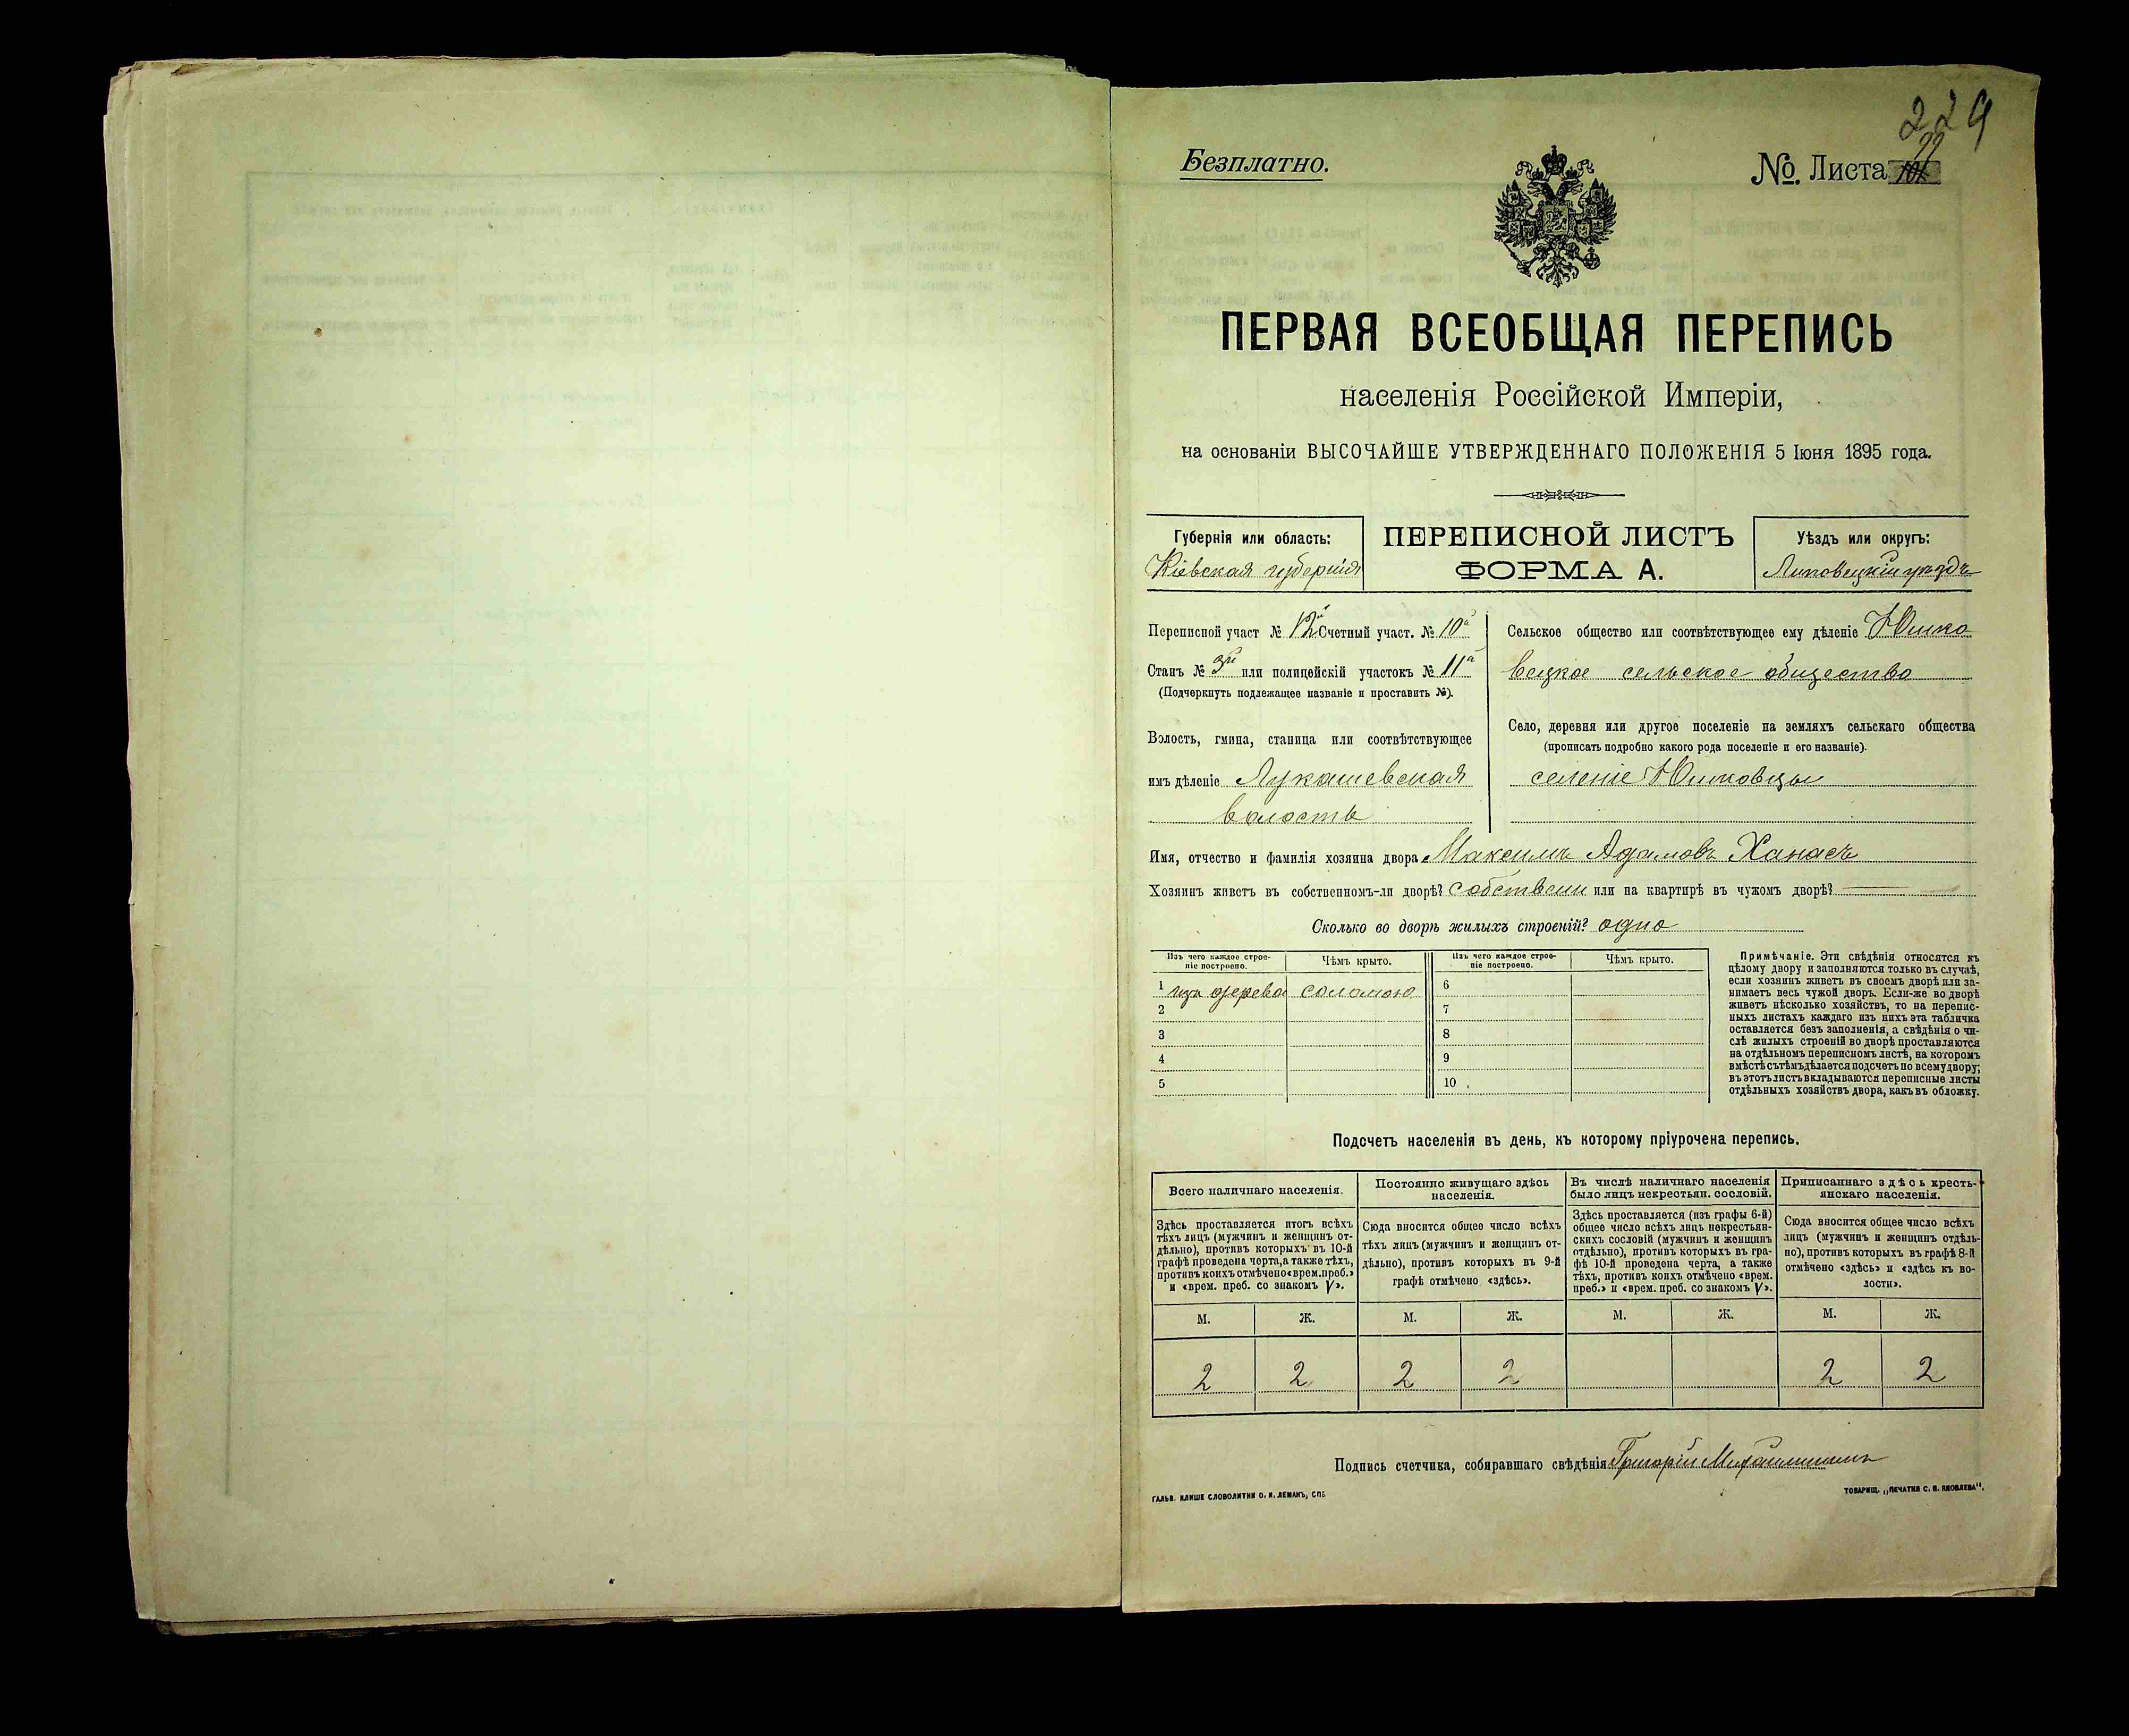 229
Безплатно.
№. Листа
ПЕРВАЯ ВСЕОБЩАЯ ПЕРЕПИСЬ
населенія Россійской Имперіи,
на основаніи ВЫСОЧАЙШЕ УТВЕРЖДЕННАГО ПОЛОЖЕНІЯ 5 Іюня 1895 года.
Губернія или область:
Кіевская губернія
ПЕРЕПИСНОЙ ЛИСТЪ
ФОРМА А.
Уѣздъ или округъ:
Липовецкій уѣздъ
Переписной участ № 12й Счетный участ. № 10й
Станъ № 3й или полицейскій участокъ № 11й
(Подчеркнуть подлежащее названіе и проставить №).
Волость, гмина, станица или соотвѣтствующее
имъ дѣленіе Лукашевская
волость
Сельское общество или соотвѣтствующее ему дѣленіе Юшко
вецкое сельское общество
Село, деревня или другое поселеніе на земляхъ сельскаго общества
(прописать подробно какого рода поселеніе и его названіе).
селеніе Юшковцы
Имя, отчество и фамилія хозяина двора Максимъ Адамовъ Ханасъ
Хозяинъ живетъ въ собственномъ-ли дворѣ? собствени или на квартирѣ въ чужомъ дворѣ? —
Сколько во дворѣ жилыхъ строеній? одно
Изъ чего каждое строе-
ніе построено.
Чѣмъ крыто.
Изъ чего каждое строе-
ніе построено.
Чѣмъ крыто.
1 изъ дерева соломою
2
3
4
5
6
7
8
9
10
Примѣчаніе. Эти свѣдѣнія относятся къ
цѣлому двору и заполняются только въ случаѣ,
если хозяинъ живетъ въ своемъ дворѣ или за-
нимаетъ весь чужой дворъ. Если-же во дворѣ
живетъ нѣсколько хозяйствъ, то на перепис-
ныхъ листахъ каждаго изъ нихъ эта табличка
оставляется безъ заполненія, а свѣдѣнія о чи-
слѣ жилыхъ строеній во дворѣ проставляются
на отдѣльномъ переписномъ листѣ, на которомъ
вмѣстѣ съ тѣмъ дѣлается подсчетъ по всему двору;
въ этотъ листъ вкладываются переписные листы
отдѣльныхъ хозяйствъ двора, какъ въ обложку.
Подсчетъ населенія въ день, къ которому пріурочена перепись.
Всего наличнаго населенія.
Постоянно живущаго здѣсь
населенія.
Въ числѣ наличнаго населенія
было лицъ некрестьян. сословій.
Приписаннаго здѣсь кресть-
янскаго населенія.
Здѣсь проставляется итогъ всѣхъ
тѣхъ лицъ (мужчинъ и женщинъ от-
дѣльно), противъ которыхъ въ 10-й
графѣ проведена черта, а также тѣхъ,
противъ коихъ отмѣчено «врем. преб.»
и «врем. преб. со знакомъ V».
Сюда вносится общее число всѣхъ
тѣхъ лицъ (мужчинъ и женщинъ от-
дѣльно), противъ которыхъ въ 9-й
графѣ отмѣчено «здѣсь».
Здѣсь проставляется (изъ графы 6-й)
общее число всѣхъ лицъ некрестьян-
скихъ сословій (мужчинъ и женщинъ
отдѣльно), противъ которыхъ въ гра-
фѣ 10-й проведена черта, а также
тѣхъ, противъ коихъ отмѣчено «врем.
преб.» и «врем. преб. со знакомъ V».
Сюда вносится общее число всѣхъ
лицъ (мужчинъ и женщинъ отдѣль-
но), противъ которыхъ въ графѣ 8-й
отмѣчено «здѣсь» и «здѣсь къ во-
лости».
М. Ж. М. Ж. М. Ж. М. Ж.
2 2 2 2 2 2
Подпись счетчика, собиравшаго свѣдѣнія Григорій
ГАЛЬВ. КЛИШЕ СЛОВОЛИТНИ О. И. ЛЕМАНЪ, СПБ
ТОВАРИЩ. „ПЕЧАТНЯ С. П. ЯКОВЛЕВА“.